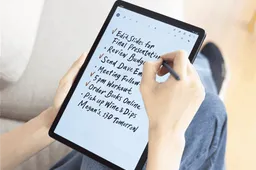 √ Edit Slides for
Final Presentation
• Review Budget
√ Send Dave
• Meeting Follow
√ 5pm Workout
• Order Books Online
• Pick up Wine & Dips
Megan's 130 Tomorrow